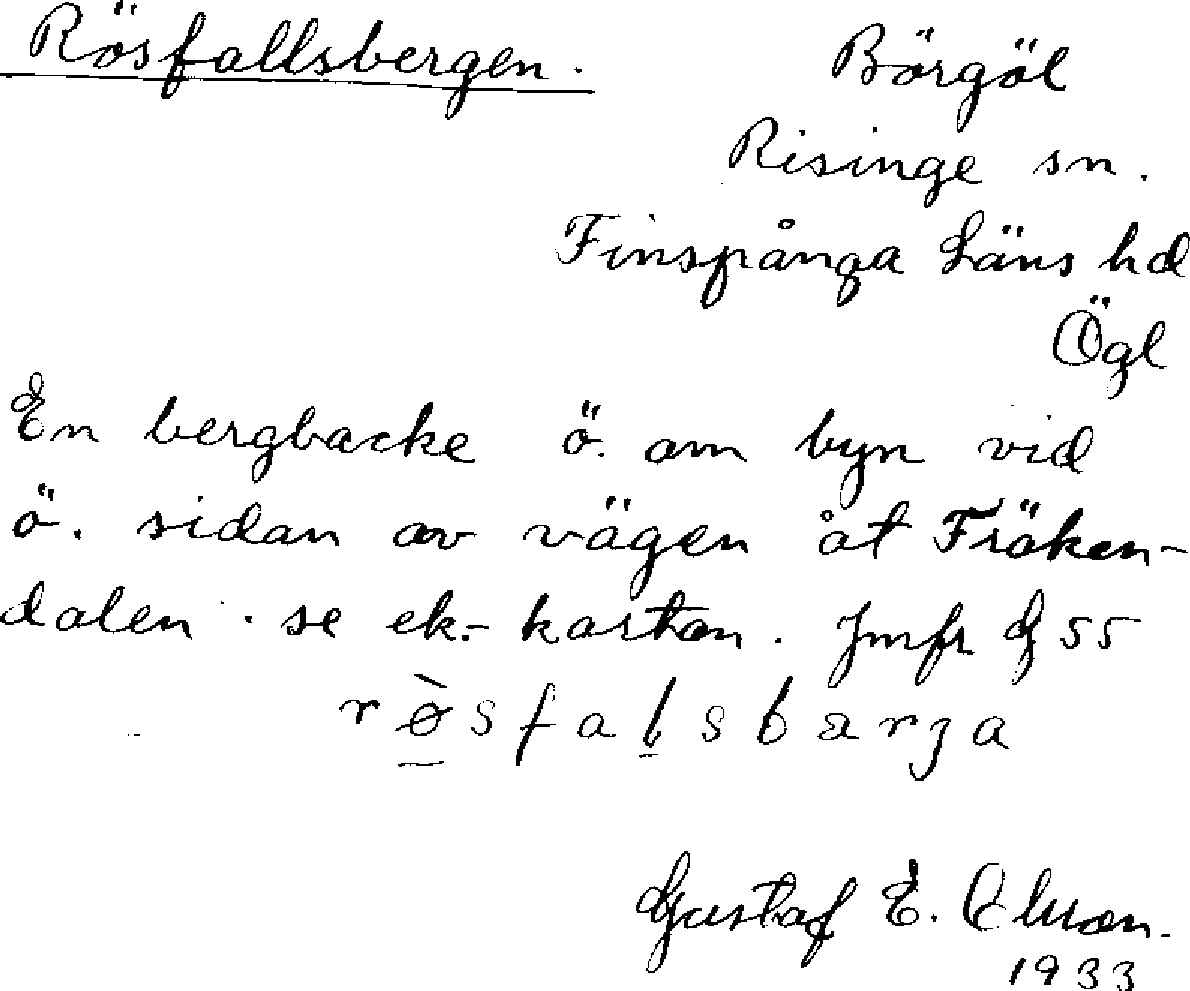 Rösfallsbergen. Börgöl
Risinge sn.
Finspånga Läns hd
Ögl
En bergbacke ö. om byn vid
ö. sidan av vägen åt Fräken-
dalen. se ek.- kartan. Jmfr 55
rø̀sfalsbærja
Gustaf E.
1933